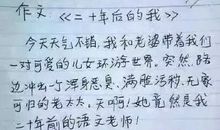 作文 《二十年后的我》
今天天气不错,我和老婆带着我们
一对可爱的儿女环游世界,突然,路
边冲出一个浑身恶臭、满脸污秽、无家
可归的老太太,天啊!她竟然是我
二十年前的语文老师!